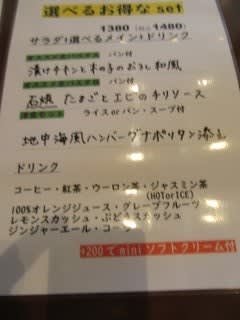 選べるお得な set
1380 (税込 1480)
サラダ+選べるメイン+ドリンク
パン付
漬けチキンと木の子のおろし和風
パン付
石焼 たまごとエビのチリソース
ライス or パン・スープ付
地中海風ハンバーグナポリタン添え
ドリンク
コーヒー・紅茶・ウーロン茶・ジャスミン茶
(HOTorICE)
100%オレンジジュース・グレープフルーツ
レモンスカッシュ・ぶどうスカッシュ
ジンジャーエール・コーラ
+200でminiソフトクリーム付